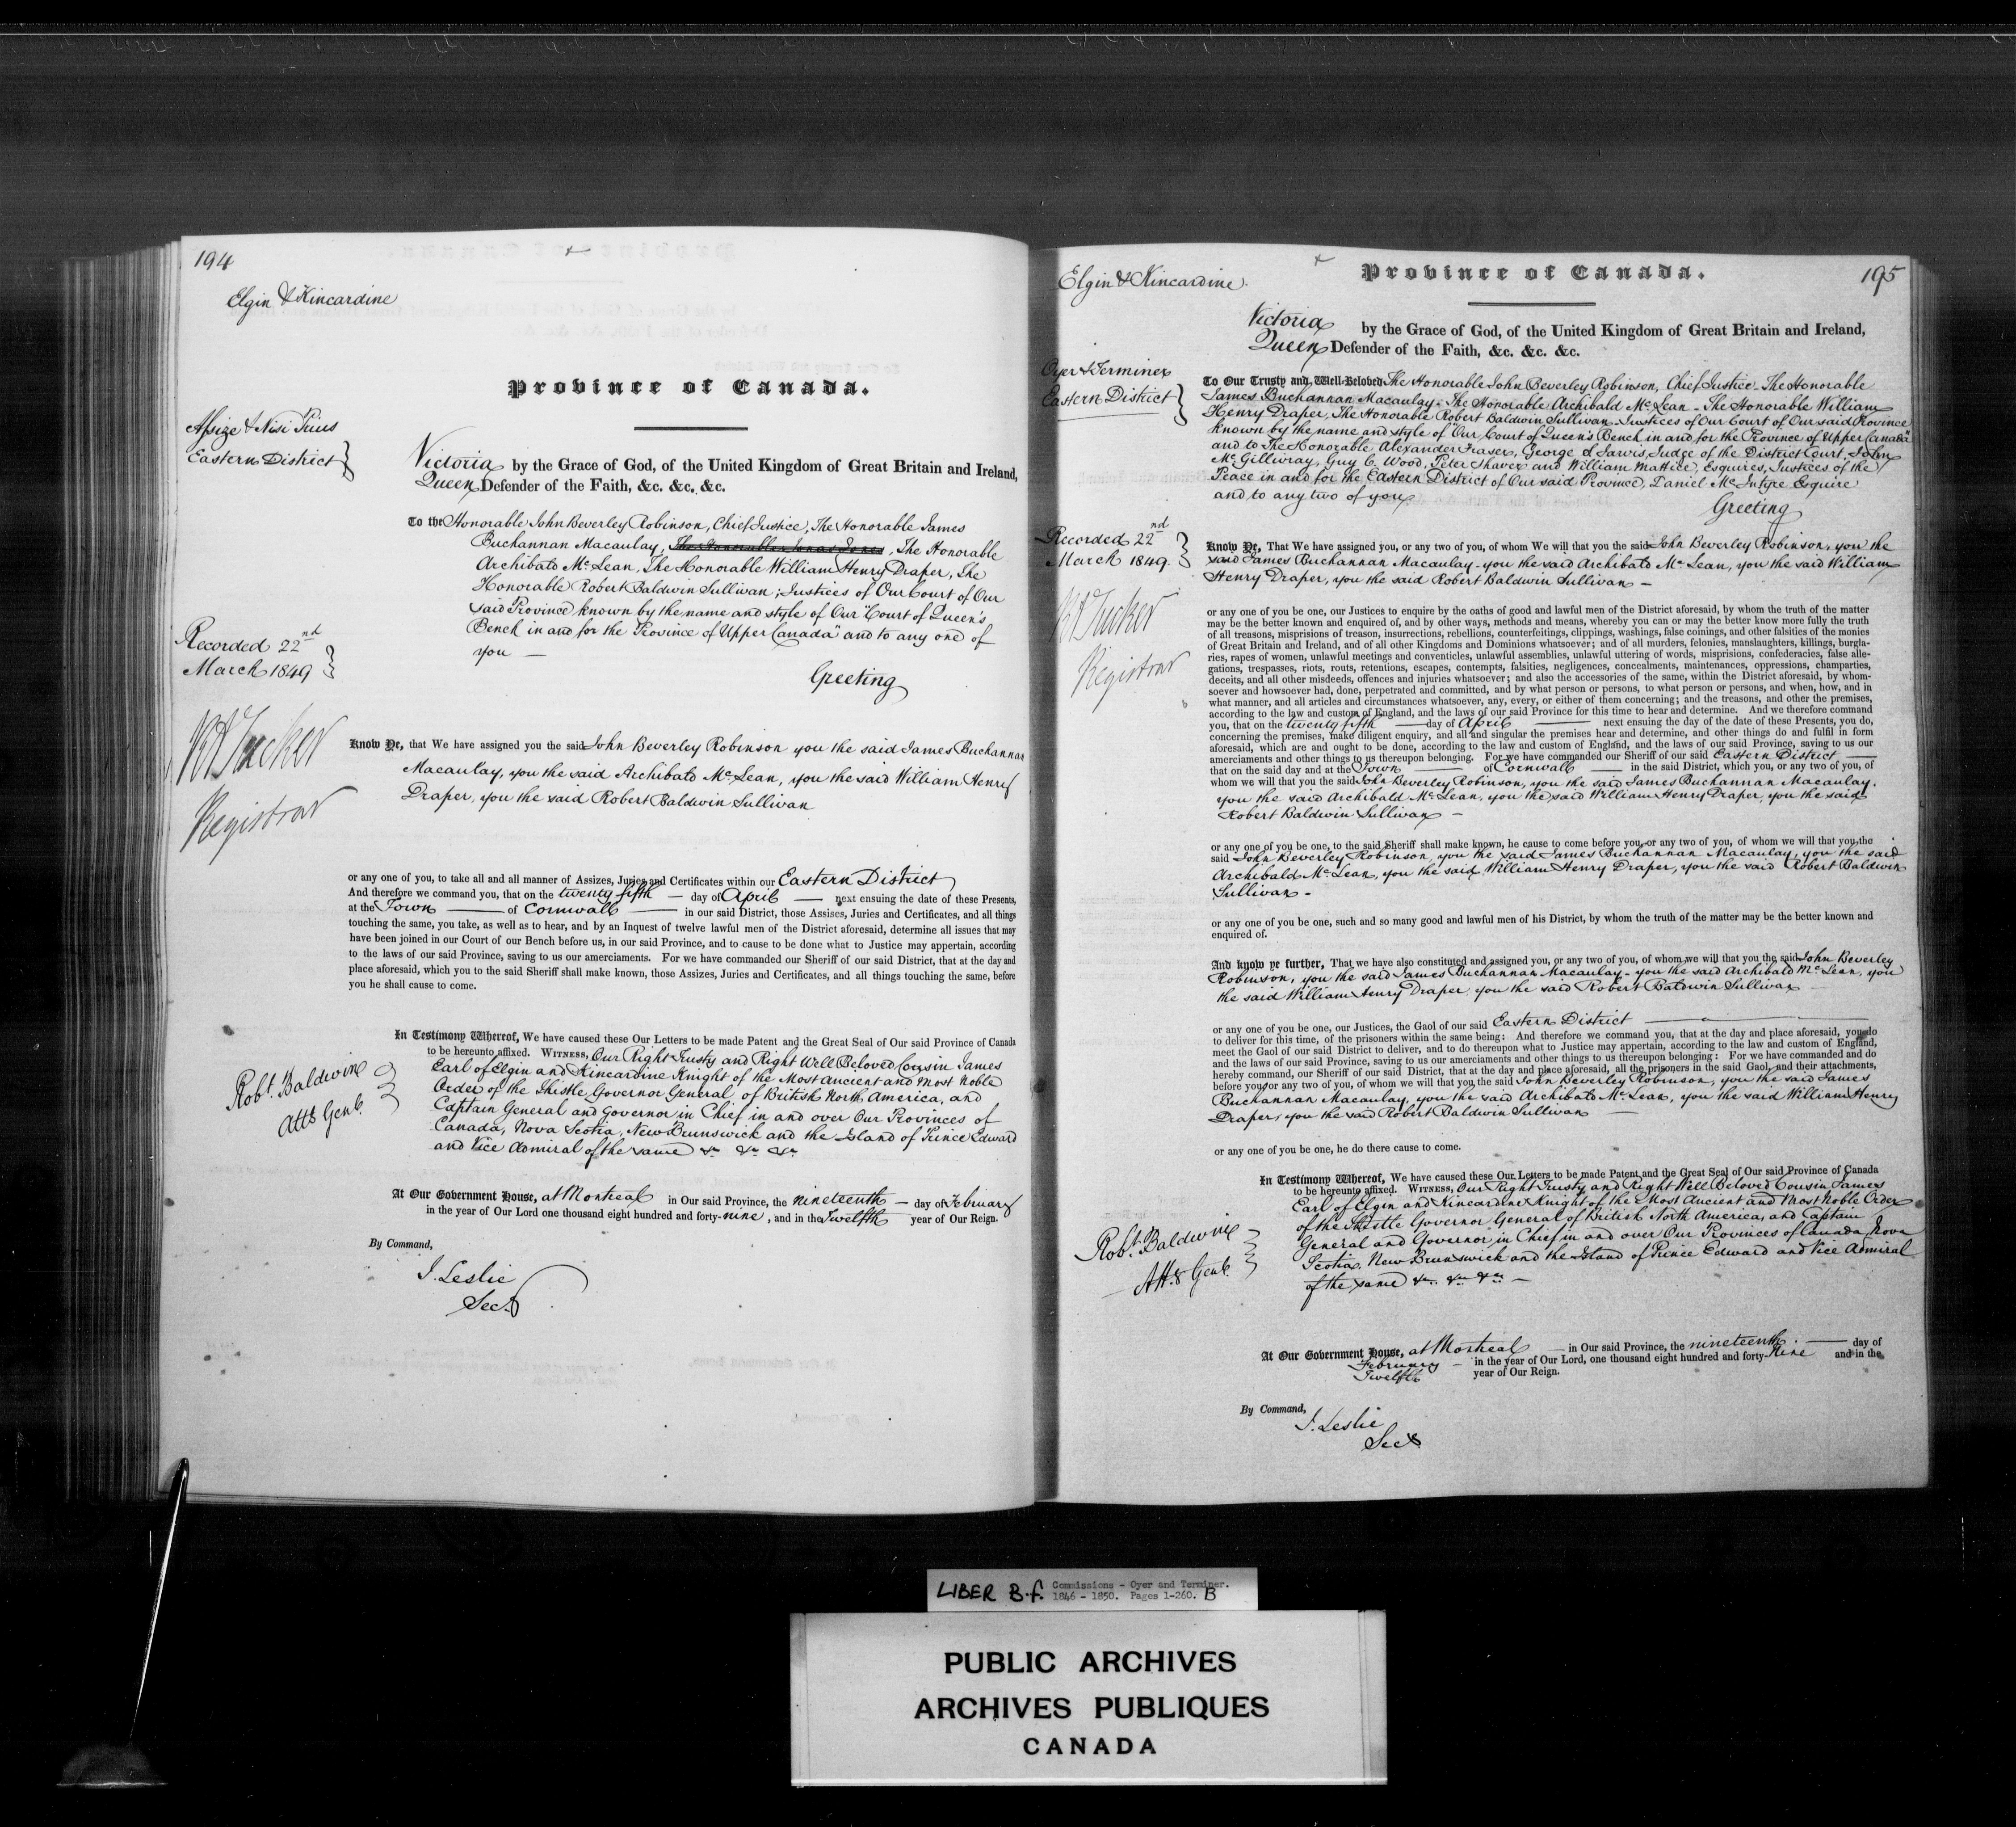 194
Elgin & Kincardine
Province of Canada.
Assize & Nisi Prius
Eastern District
Victoria by the Grace of God, of the United Kingdom of Great Britain and Ireland,
Queen Defender of the Faith, &c. &c. &c.
To the Honorable John Beverley Robinson, Chief Justice, The Honorable James
Buchannan Macaulay, The Honorable Jonas Jones, The Honorable
Archibald McLean, The Honorable William Henry Draper, The
Honorable Robert Baldwin Sullivan; Justices of Our Court of Our
said Province known by the name and style of Our "Court of Queen's
Bench in and for the Province of Upper Canada" and to any one of
you —
Greeting
Recorded 22nd
March 1849
RATucker
Registrar
Know Ye, that We have assigned you the said John Beverley Robinson you the said James Buchannan
Macaulay, you the said Archibald McLean, you the said William Henry
Draper, you the said Robert Baldwin Sullivan
or any one of you, to take all and all manner of Assizes, Juries and Certificates within our Eastern District
And therefore we command you, that on the twenty fifth — day of April — next ensuing the date of these Presents,
at the Town — of Cornwall — in our said District, those Assises, Juries and Certificates, and all things
touching the same, you take, as well as to hear, and by an Inquest of twelve lawful men of the District aforesaid, determine all issues that may
have been joined in our Court of our Bench before us, in our said Province, and to cause to be done what to Justice may appertain, according
to the laws of our said Province, saving to us our amerciaments. For we have commanded our Sheriff of our said District, that at the day and
place aforesaid, which you to the said Sheriff shall make known, those Assizes, Juries and Certificates, and all things touching the same, before
you he shall cause to come.
In Testimony Whereof, We have caused these Our Letters to be made Patent and the Great Seal of Our said Province of Canada
to be hereunto affixed. WITNESS, Our Right Trusty and Right Well Beloved Cousin James
Earl of Elgin and Kincardine Knight of the Most Ancient and Most Noble
Order of the Thistle Governor General of British North America, and
Captain General and Governor in Chief in and over Our Provinces of
Canada, Nova Scotia, New Brunswick and the Island of Prince Edward
and Vice Admiral of the same &c &c &c
Robt. Baldwin
Atty Genl.
At Our Government House, at Montreal in Our said Province, the nineteenth — day of February
in the year of Our Lord one thousand eight hundred and forty-nine, and in the Twelfth year of Our Reign.
By Command,
J. Leslie
Secy
195
Elgin & Kincardine.
Province of Canada.
Victoria by the Grace of God, of the United Kingdom of Great Britain and Ireland,
Queen Defender of the Faith, &c. &c. &c.
Oyer & Terminer
Eastern District
To Our Trusty and Well-Beloved The Honorable John Beverley Robinson, Chief Justice – The Honorable
James Buchannan Macaulay – The Honorable Archibald McLean – The Honorable William
Henry Draper, The Honorable Robert Baldwin Sullivan – Justices of Our Court of Our said Province
known by the name and style of "Our Court of Queen's Bench in and for the Province of Upper Canada"
and to The Honorable Alexander Fraser, George S Jarvis, Judge of the District Court, John
McGillivray, Guy C. Wood, Peter Shaver and William Mattice, Esquires, Justices of the
Peace in and for the Eastern District of Our said Province, Daniel McIntyre Esquire
and to any two of you
Greeting
Recorded 22nd
March 1849.
RATucker
Registrar
Know Ye, That We have assigned you, or any two of you, of whom We will that you the said John Beverley Robinson, you the
said James Buchannan Macaulay – you the said Archibald McLean, you the said William
Henry Draper, you the said Robert Baldwin Sullivan –
or any one of you be one, our Justices to enquire by the oaths of good and lawful men of the District aforesaid, by whom the truth of the matter
may be the better known and enquired of, and by other ways, methods and means, whereby you can or may the better know more fully the truth
of all treasons, misprisions of treason, insurrections, rebellions, counterfeitings, clippings, washings, false coinings, and other falsities of the monies
of Great Britain and Ireland, and of all other Kingdoms and Dominions whatsoever; and of all murders, felonies, manslaughters, killings, burgla-
ries, rapes of women, unlawful meetings and conventicles, unlawful assemblies, unlawful uttering of words, misprisions, confederacies, false alle-
gations, trespasses, riots, routs, retentions, escapes, contempts, falsities, negligences, concealments, maintenances, oppressions, champarties,
deceits, and all other misdeeds, offences and injuries whatsoever; and also the accessories of the same, within the District aforesaid, by whom-
soever and howsoever had, done, perpetrated and committed, and by what person or persons, to what person or persons, and when, how, and in
what manner, and all articles and circumstances whatsoever, any, every, or either of them concerning; and the treasons, and other the premises,
according to the law and custom of England, and the laws of our said Province for this time to hear and determine. And we therefore command
you, that on the twenty fifth — day of April — next ensuing the day of the date of these Presents, you do,
concerning the premises, make diligent enquiry, and all and singular the premises hear and determine, and other things do and fulfil in form
aforesaid, which are and ought to be done, according to the law and custom of England, and the laws of our said Province, saving to us our
amerciaments and other things to us thereupon belonging. For we have commanded our Sheriff of our said Eastern District —
that on the said day and at the Town — of Cornwall — in the said District, which you, or any two of you, of
whom we will that you the said John Beverley Robinson, you the said James Buchannan Macaulay,
you the said Archibald McLean, you the said William Henry Draper, you the said
Robert Baldwin Sullivan –
or any one of you be one, to the said Sheriff shall make known, he cause to come before you, or any two of you, of whom we will that you the
said John Beverley Robinson, you the said James Buchannan Macaulay, you the said
Archibald McLean, you the said William Henry Draper, you the said Robert Baldwin
Sullivan –
or any one of you be one, such and so many good and lawful men of his District, by whom the truth of the matter may be the better known and
enquired of.
And know ye further, That we have also constituted and assigned you, or any two of you, of whom we will that you the said John Beverley
Robinson, you the said James Buchannan Macaulay – you the said Archibald McLean, you
the said William Henry Draper you the said Robert Baldwin Sullivan –
or any one of you be one, our Justices, the Gaol of our said Eastern District —
to deliver for this time, of the prisoners within the same being: And therefore we command you, that at the day and place aforesaid, you do
meet the Gaol of our said District to deliver, and to do thereupon what to Justice may appertain, according to the law and custom of England,
and the laws of our said Province, saving to us our amerciaments and other things to us thereupon belonging: For we have commanded and do
hereby command, our Sheriff of our said District, that at the day and place aforesaid, all the prisoners in the said Gaol, and their attachments,
before you, or any two of you, of whom we will that you the said John Beverley Robinson, you the said James
Buchannan Macaulay, you the said Archibald McLean, you the said William Henry
Draper, you the said Robert Baldwin Sullivan —
or any one of you be one, he do there cause to come.
In Testimony Whereof, We have caused these Our Letters to be made Patent and the Great Seal of Our said Province of Canada
to be hereunto affixed. WITNESS, Our Right Trusty and Right Well Beloved Cousin James
Earl of Elgin and Kincardine Knight of the Most Ancient and Most Noble Order
of the Thistle Governor General of British North America, and Captain
General and Governor in Chief in and over Our Provinces of Canada, Nova
Scotia, New Brunswick and the Island of Prince Edward and Vice Admiral
of the same &c. &c &c –
Robt. Baldwin
Atty Genl.
At Our Government House, at Montreal — in Our said Province, the nineteenth — day of
February – in the year of Our Lord, one thousand eight hundred and forty-Nine and in the
Twelfth year of Our Reign.
By Command,
J. Leslie
Secy
LIBER B.f. Commissions - Oyer and Terminer.
1846 - 1850. Pages 1-260. B
PUBLIC ARCHIVES
ARCHIVES PUBLIQUES
CANADA